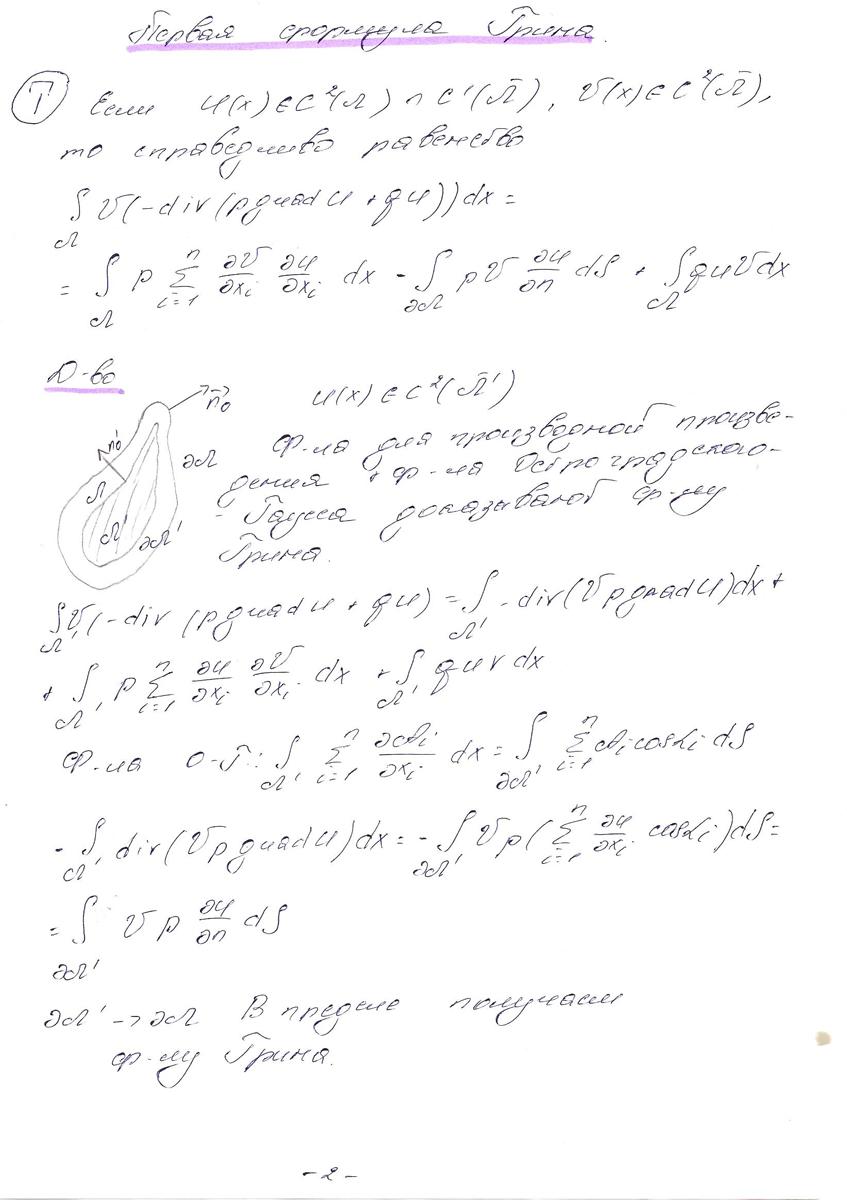 Первая формула Грина.
Т Если u(x)∈C²(Ω)∩C¹(Ω̄), v(x)∈C²(Ω̄),
то справедливо равенство
∫_Ω v(-div(p grad u + qu))dx =
= ∫_Ω p ∑_{i=1}^n ∂v/∂x_i ∂u/∂x_i dx - ∫_∂Ω pv ∂u/∂n dS + ∫_Ω quvdx
Д-во
n⃗₀ u(x)∈C²(Ω̄')
n₀' ∂Ω Ф-ла для производной произве-
Ω дения + ф-ла Остроградского-
Ω' ∂Ω' - Гаусса доказывают ф-лу
Грина.
∫_Ω' v(-div(p grad u + qu) = ∫_Ω' -div(vp grad u)dx +
+ ∫_Ω' p ∑_{i=1}^n ∂u/∂x_i ∂v/∂x_i dx + ∫_Ω' quv dx
Ф-ла О-Г: ∫_Ω' ∑_{i=1}^n ∂A_i/∂x_i dx = ∫_∂Ω' ∑_{i=1}^n A_i cosα_i dS
- ∫_Ω' div(vp grad u)dx = - ∫_∂Ω' vp(∑_{i=1}^n ∂u/∂x_i cosα_i)dS =
= ∫_∂Ω' vp ∂u/∂n dS
∂Ω' -> ∂Ω В пределе получаем
ф-лу Грина.
-2-